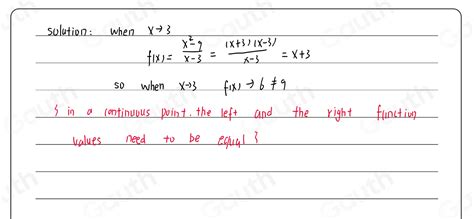 solution: when x→3
f(x) = x²-9 / x-3 = (x+3)(x-3) / x-3 = x+3
so when x→3 f(x) → 6 ≠ 9
{ in a continuous point. the left and the right function
values need to be equal }